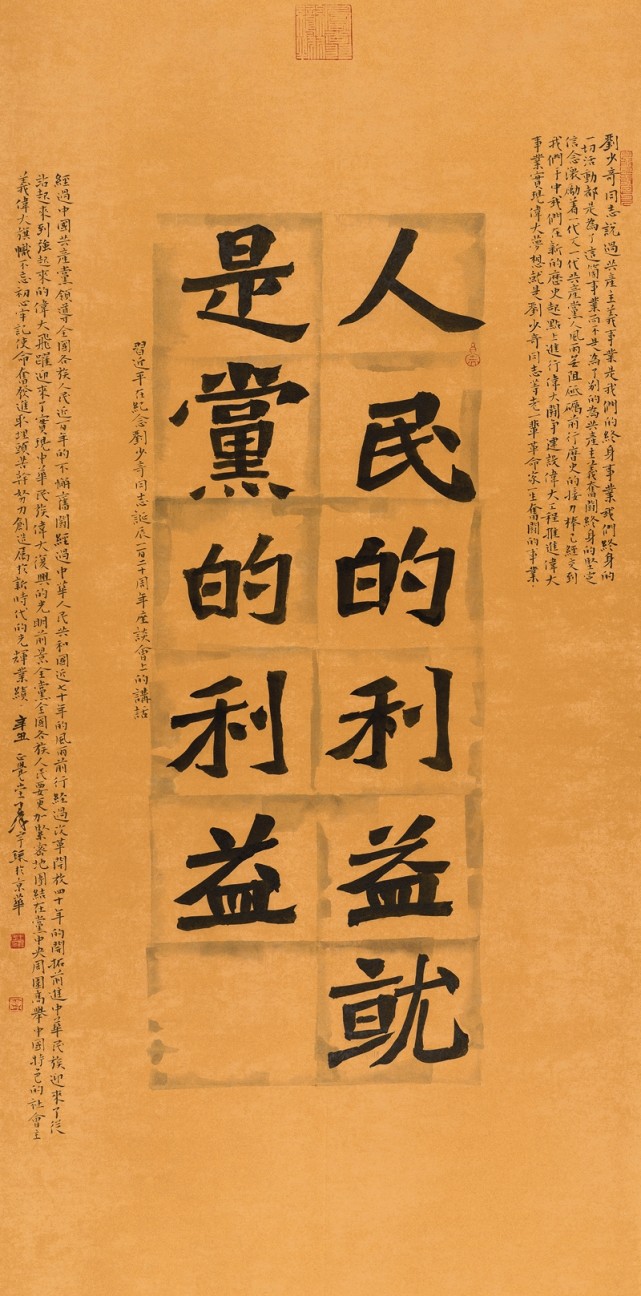 劉少奇同志說過共產主義事業是我們的終身事業我們終身的
一切活動都是為了這個事業而不是為了別的為共產主義奮鬥終身的堅定
信念激勵着一代又一代共產黨人風雨無阻砥礪前行歷史的接力棒已經交到
我們手中我們在新的歷史起點上進行偉大鬥爭建設偉大工程推進偉大
事業實現偉大夢想就是劉少奇同志等老一輩革命家一生奮鬥的事業
人民的利益就
是黨的利益
習近平在紀念劉少奇同志誕辰一百二十周年座談會上的講話
經過中國共產黨領導全國各族人民近百年的不懈奮鬥經過中華人民共和國近七十年的風雨前行經過改革開放四十年的開拓前進中華民族迎來了從
站起來到強起來的偉大飛躍迎來了實現中華民族偉大復興的光明前景全黨全國各族人民要更加緊密地團結在黨中央周圍高舉中國特色的社會主
義偉大旗幟不忘初心牢記使命奮發進取埋頭苦幹努力創造屬於新時代的光輝業績 辛丑 於京華